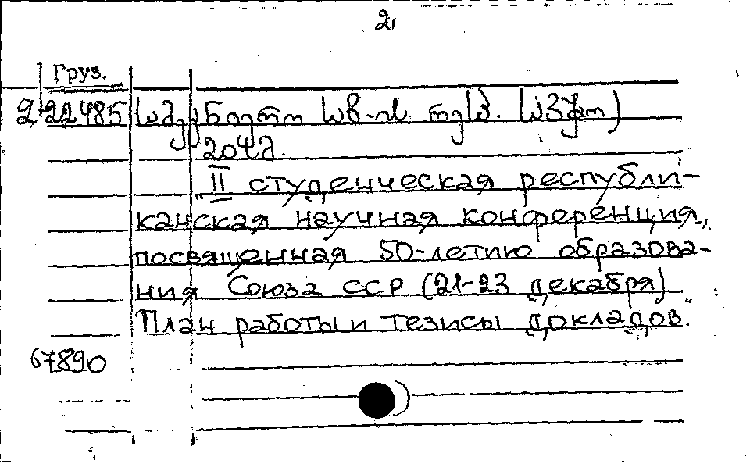 2
Груз.
2.22485
204გ.
II студенческая республи-
канская научная конференция,
посвященная 50-летию образова-
ния Союза ССР (21-23 декабря)
План работы и тезисы докладов.
67890